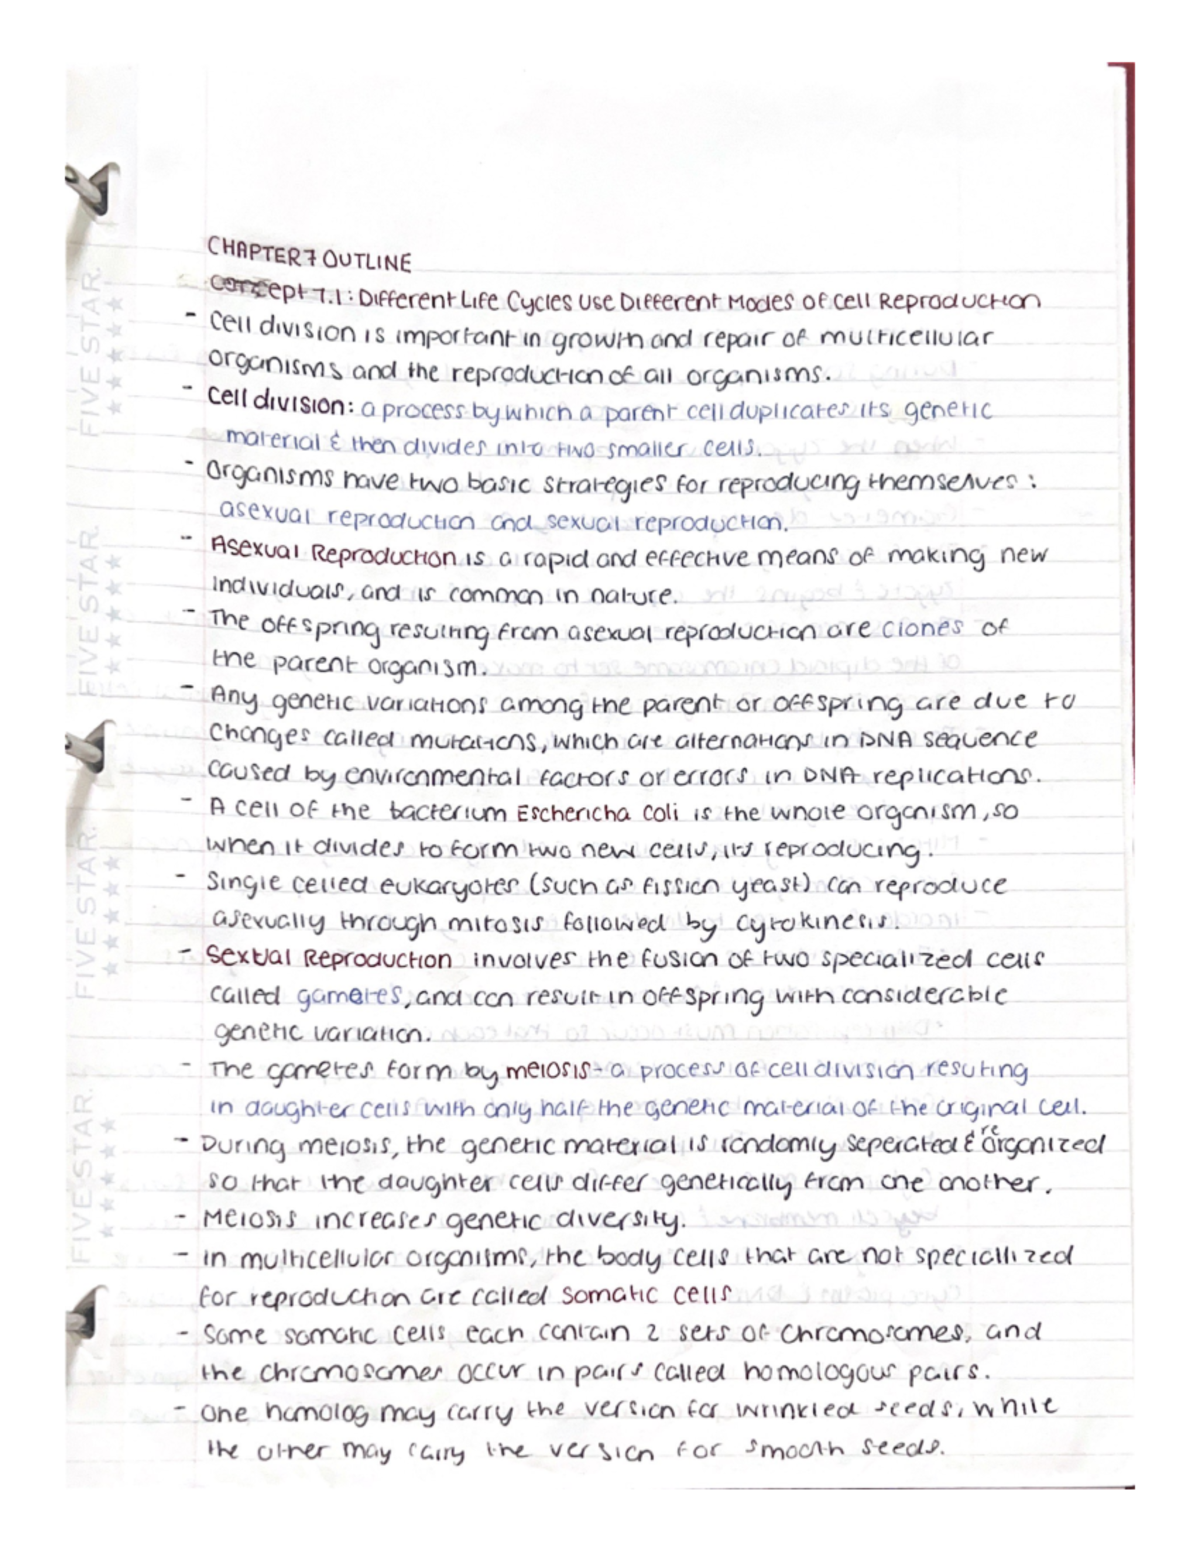 CHAPTER 7 OUTLINE
Concept 7.1: Different Life Cycles Use Different Modes of Cell Reproduction
- Cell division is important in growth and repair of multicellular
organisms and the reproduction of all organisms.
- Cell division: a process by which a parent cell duplicates its genetic
material & then divides into two smaller cells.
- Organisms have two basic strategies for reproducing themselves:
asexual reproduction and sexual reproduction.
- Asexual Reproduction is a rapid and effective means of making new
individuals, and is common in nature.
- The offspring resulting from asexual reproduction are clones of
the parent organism.
- Any genetic variations among the parent or offspring are due to
changes called mutations, which are alternations in DNA sequence
caused by environmental factors or errors in DNA replications.
- A cell of the bacterium Eschericha Coli is the whole organism, so
when it divides to form two new cells, its reproducing.
- Single celled eukaryotes (such as fission yeast) can reproduce
asexually through mitosis followed by cytokinesis.
- Sexual Reproduction involves the fusion of two specialized cells
called gametes, and can result in offspring with considerable
genetic variation.
- The gametes form by meiosis - a process of cell division resulting
in daughter cells with only half the genetic material of the original cell.
- During meiosis, the genetic material is randomly seperated & reorganized
so that the daughter cells differ genetically from one another.
- Meiosis increases genetic diversity.
- in multicellular organisms, the body cells that are not speciallized
for reproduction are called somatic cells
- Some somatic cells each contain 2 sets of chromosomes, and
the chromosomes occur in pairs called homologous pairs.
- One homolog may carry the version for wrinkled seeds, while
the other may carry the version for smooth seeds.
FIVE STAR.
FIVE STAR.
FIVE STAR.
FIVE STAR.